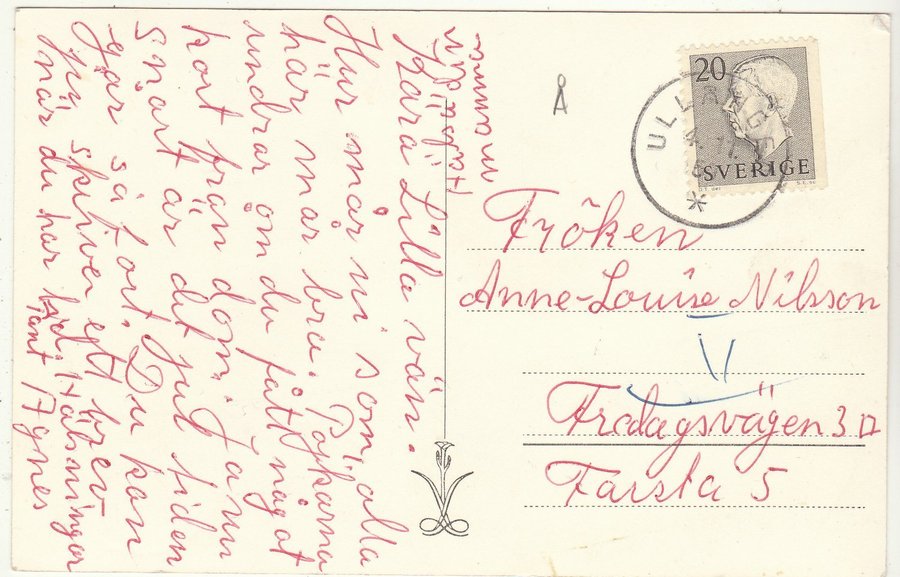 Kära Lilla vän.
Hur mår ni som, alla
här mår bra. Pojkarna
undrar om du fått något
kort från dom. Ja nu
snart är det jul tiden
går så fort. Du kan
ju skriver ett brev
när du har tid. Hälsningar
Tant Agnes
mamma
20
SVERIGE
ULLÅ
Fröken
Anne-Louise Nilsson
Fredagsvägen 3 D
Farsta 5